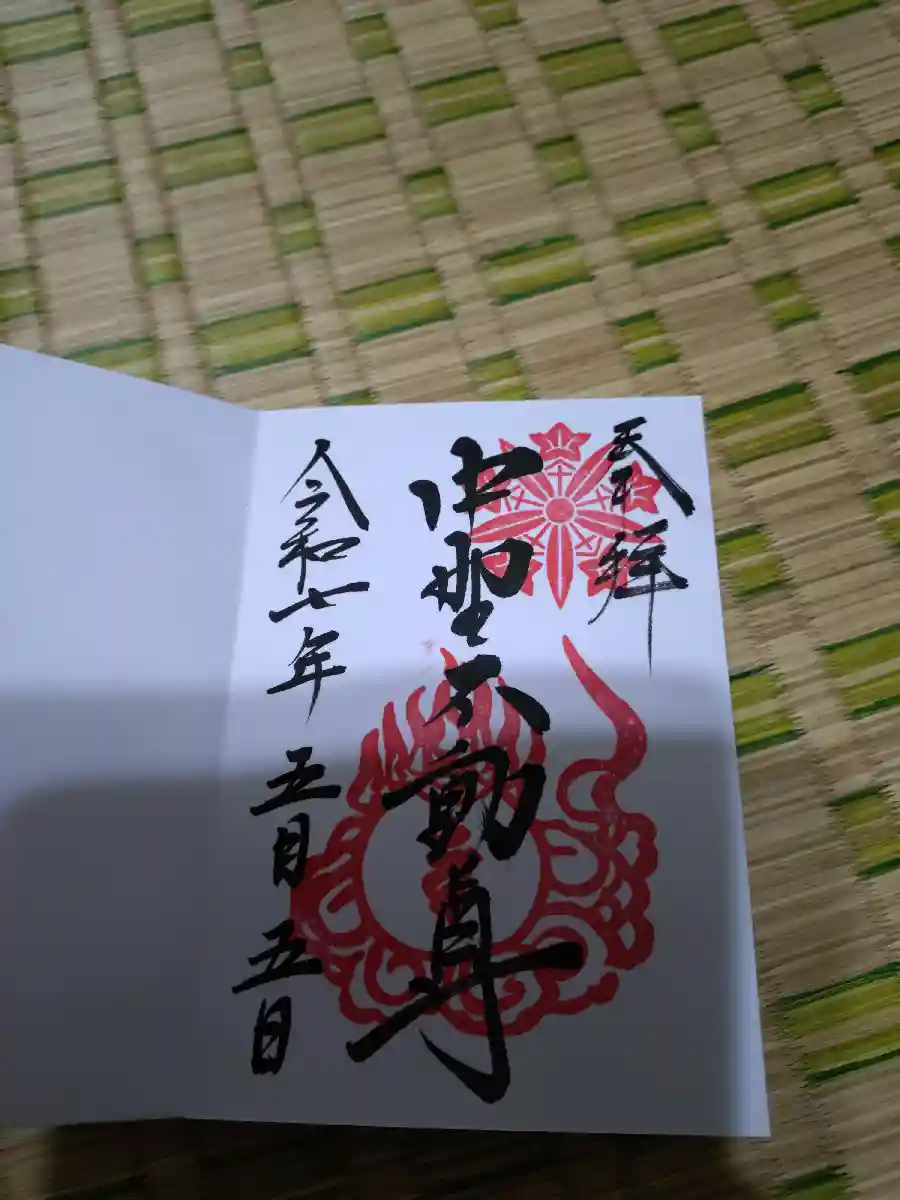 奉拝
中聖不動尊
令和七年 五月 五日